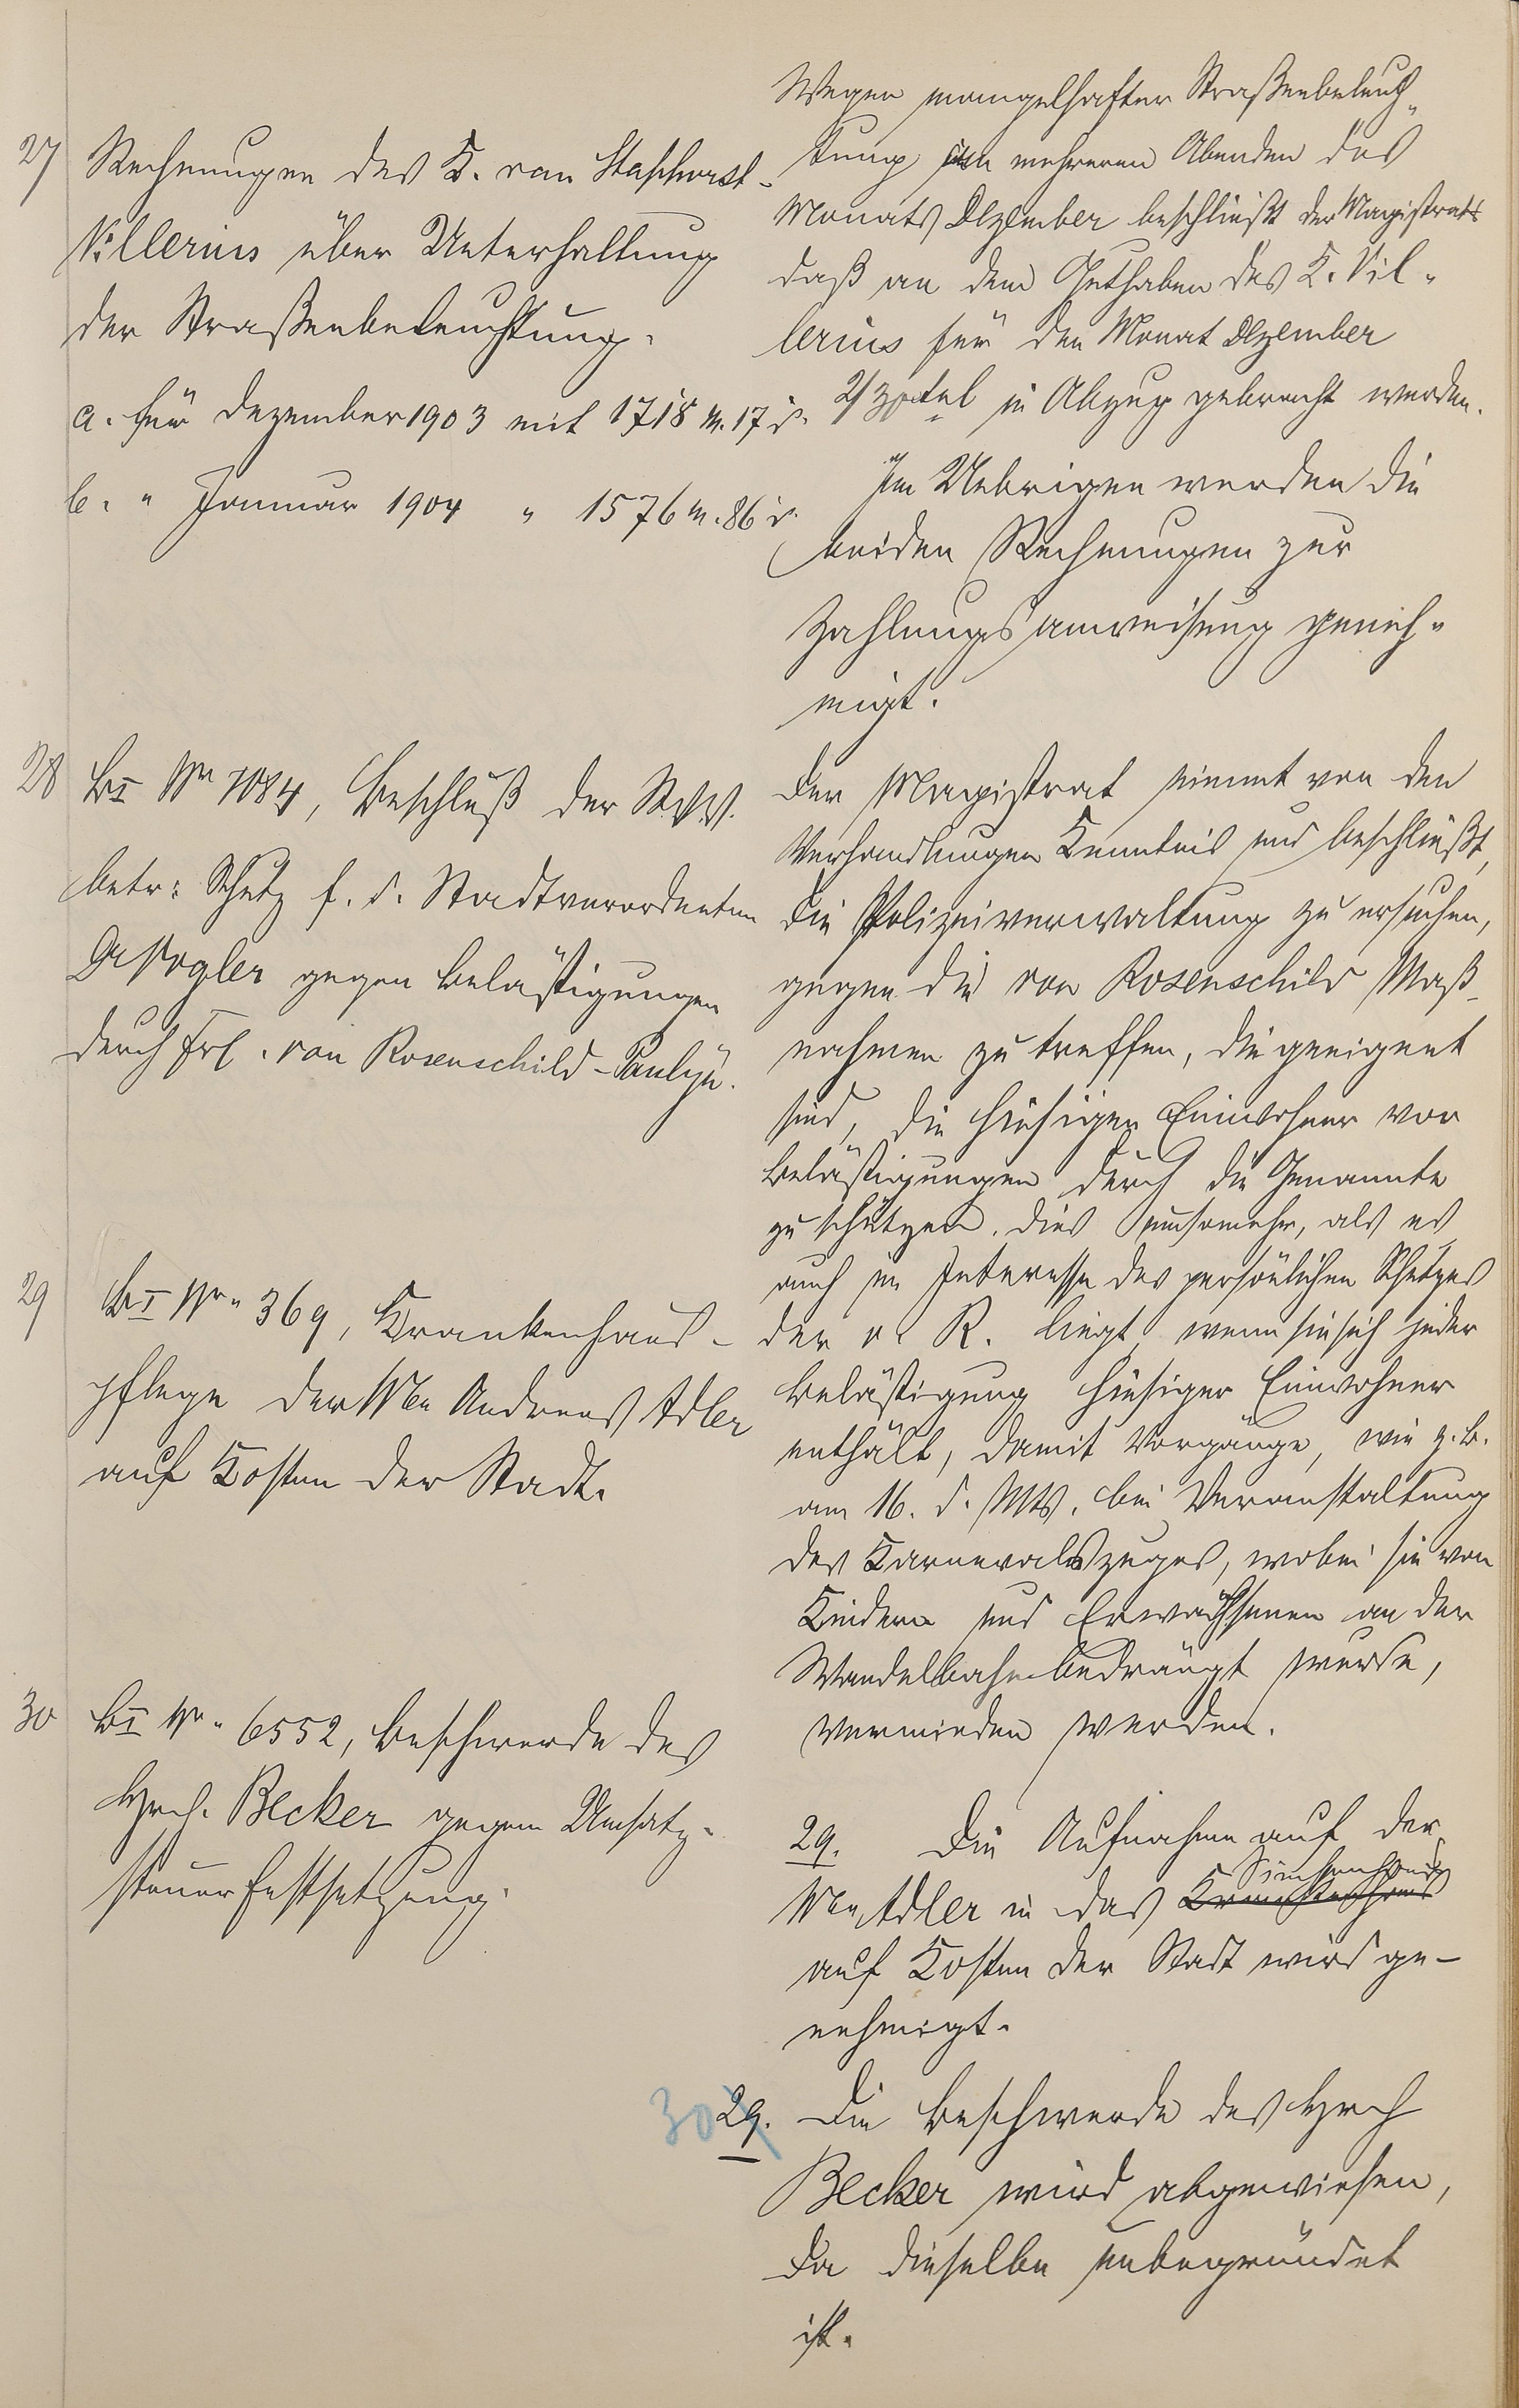 27 Rechnungen des K. van Staphorst-
Villerius über Unterhaltung
der Straßenbeleuchtung.
a. für Dezember 1903 mit 1718 M. 17 d.
b. " Januar 1904 " 1576 M. 86 d.
Wegen mangelhafter Straßenbeleuch-
tung an mehreren Abenden des
Monats Dezember beschließt der Magistrat
daß an dem Guthaben des K. Vil-
lerius für den Monat Dezember
2/30tel in Abzug gebracht werden.
Im Uebrigen werden die
beiden Rechnungen zur
Zahlungsanweisung geneh-
migt.
28 BI Nr 7084, Beschluß der St.V.V.
betr: Schutz f. d. Stadtverordneten
Dr Vogler gegen Belästigungen
durch Frl. von Rosenschild-Paulyn.
Der Magistrat nimmt von den
Verhandlungen Kenntnis und beschließt,
die Polizeiverwaltung zu ersuchen,
gegen die von Rosenschild Maß-
nahmen zu treffen, die geeignet
sind, die hiesigen Einwohner vor
Belästigungen durch die Genannte
zu schützen. Dies umsomehr, als es
auch im Interesse des persönlichen Schutzes
der v. R. liegt, wenn sie sich jeder
Belästigung hiesiger Einwohner
enthält, damit Vorgänge, wie z.B.
am 16. d. Mts. bei Veranstaltung
des Karnevalszuges, wobei sie von
Kindern und Erwachsenen an der
Wandelbahn bedrängt wurde,
vermieden werden.
29 BI Nr. 369, Krankenhaus-
pflege der Wwe Andreas Adler
auf Kosten der Stadt.
29. Die Aufnahme auf der
Siechenhaus
Wwe Adler in das Krankenhaus
auf Kosten der Stadt wird ge-
nehmigt.
30 BI Nr. 6552, Beschwerde des
Hrch. Becker gegen Umsatz-
steuerfestsetzung.
30 29. Die Beschwerde des Hrch
Becker wird abgewiesen,
da dieselbe unbegründet
ist.